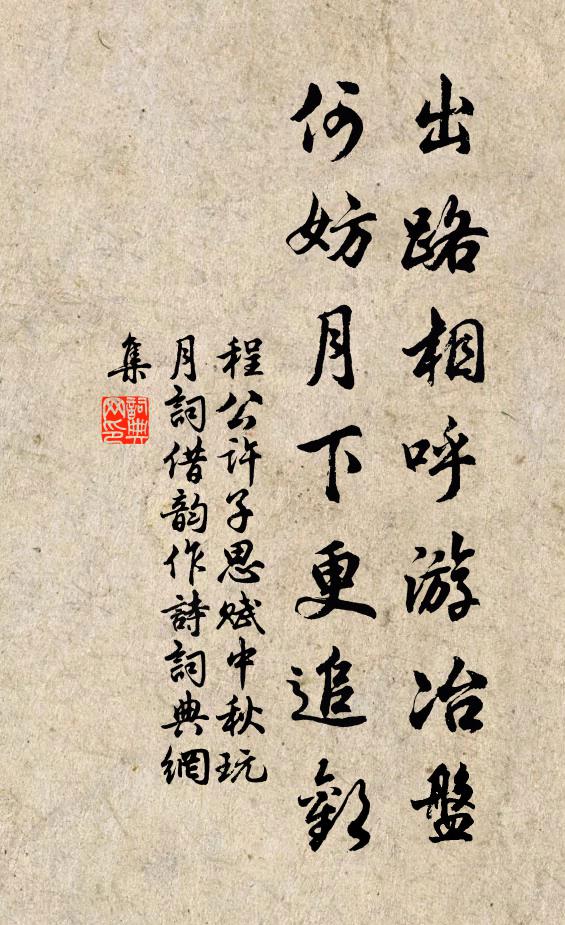 出路相呼游冶盤
何妨月下更追歡
程公許子思賦中秋玩
月詞借韵作詩詞典網
集
詞典網印